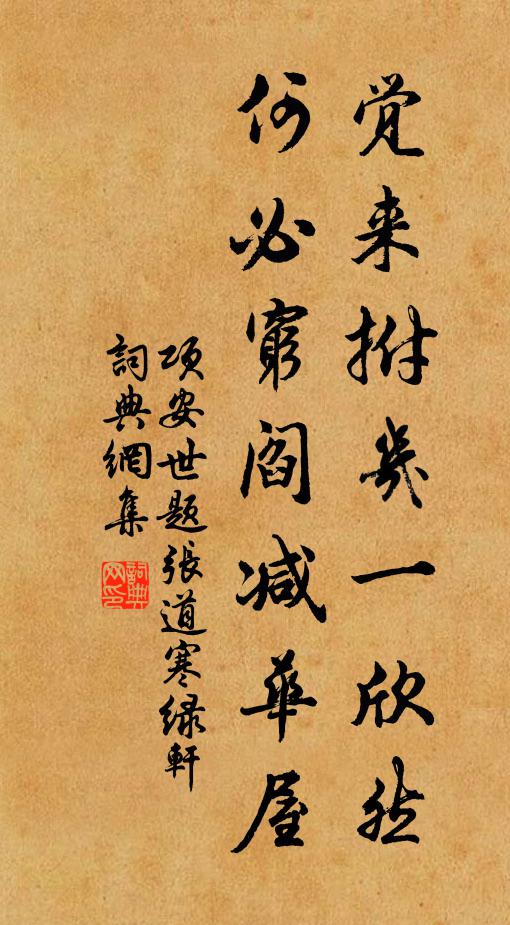 觉来拊几一欣然
何必穷阎减华屋
项安世题張道寒绿軒
詞典網集
詞典网印